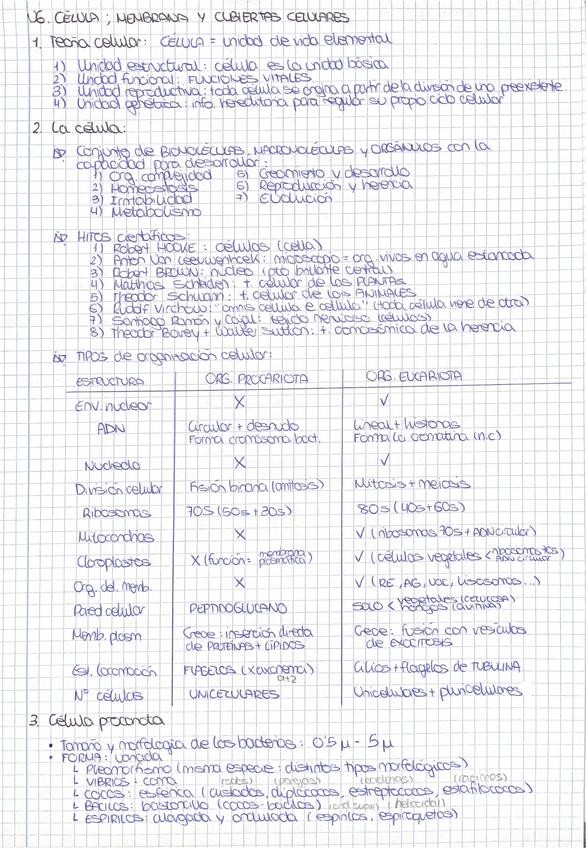 U6. CÉLULA; MEMBRANA Y CUBIERTAS CELULARES
1. Teoría celular: CÉLULA = unidad de vida elemental
1) Unidad estructural: célula es la unidad básica
2) Unidad funcional: FUNCIONES VITALES
3) Unidad reproductiva: toda célula se origina a partir de la división de una preexistente
4) Unidad genética: info. hereditaria para regular su propio ciclo celular
2. La célula:
Conjunto de BIOMOLÉCULAS, MACROMOLÉCULAS y ORGÁNULOS con la
capacidad para desarrollar:
1) Org. complejidad 5) Crecimiento y desarrollo
2) Homeostasis 6) Reproducción y herencia
3) Irritabilidad 7) Evolución
4) Metabolismo
HITOS científicos:
1) Robert HOOKE: células (cella)
2) Anton Van Leeuwenhoek: microscopio = org. vivos en agua estancada
3) Robert BROWN: núcleo (pto brillante central)
4) Matthias Schleiden: t. celular de las PLANTAS
5) Theodor Schwann: t. celular de los ANIMALES
6) Rudolf Virchow: "omnis cellula e cellula" (toda célula viene de otra)
7) Santiago Ramón y Cajal: tejido nervioso (células)
8) Theodor Bovery + Walter Sutton: t. cromosómica de la herencia
TIPOS de organización celular:
ESTRUCTURA ORG. PROCARIOTA ORG. EUCARIOTA
Env. nuclear X ✓
ADN Circular + desnudo Lineal + histonas
Forma cromosoma bact. Forma la cromatina (n.c)
Nucleolo X ✓
División celular Fisión binaria (amitosis) Mitosis + meiosis
Ribosomas 70S (50s + 30s) 80s (40s + 60s)
Mitocondrias X ✓ (ribosomas 70s + ADN circular)
Cloroplastos X (función: membrana plasmática) ✓ (células vegetales < ribosomas 70s ADN circular)
Org. del. memb. X ✓ (RE, AG, VAC, Lisosomas...)
Pared celular PEPTIDOGLUCANO SOLO < vegetales (celulosa) hongos (quitina)
Memb. plasm Crece: inserción directa Crece: fusión con vesículas
de PROTEÍNAS + LÍPIDOS de EXOCITOSIS
Est. locomoción FLAGELOS (X axonema) Cilios + flagelos de TUBULINA
9+2
Nº células UNICELULARES Unicelulares + pluricelulares
3. Célula procariota
• Tamaño y morfología de las bacterias: 0'5 µ - 5 µ
• FORMA: variada
Pleomorfismo (misma especie: distintos tipos morfológicos)
VIBRIOS: coma (solos) (parejas) (cadenas) (racimos)
COCOS: esférica (aislados, diplococos, estreptococos, estafilococos)
BACILOS: bastoncillo (cocos-bacilos) (helicoidal)
ESPIRILOS: alargada y ondulada (espirilos, espiroquetas)